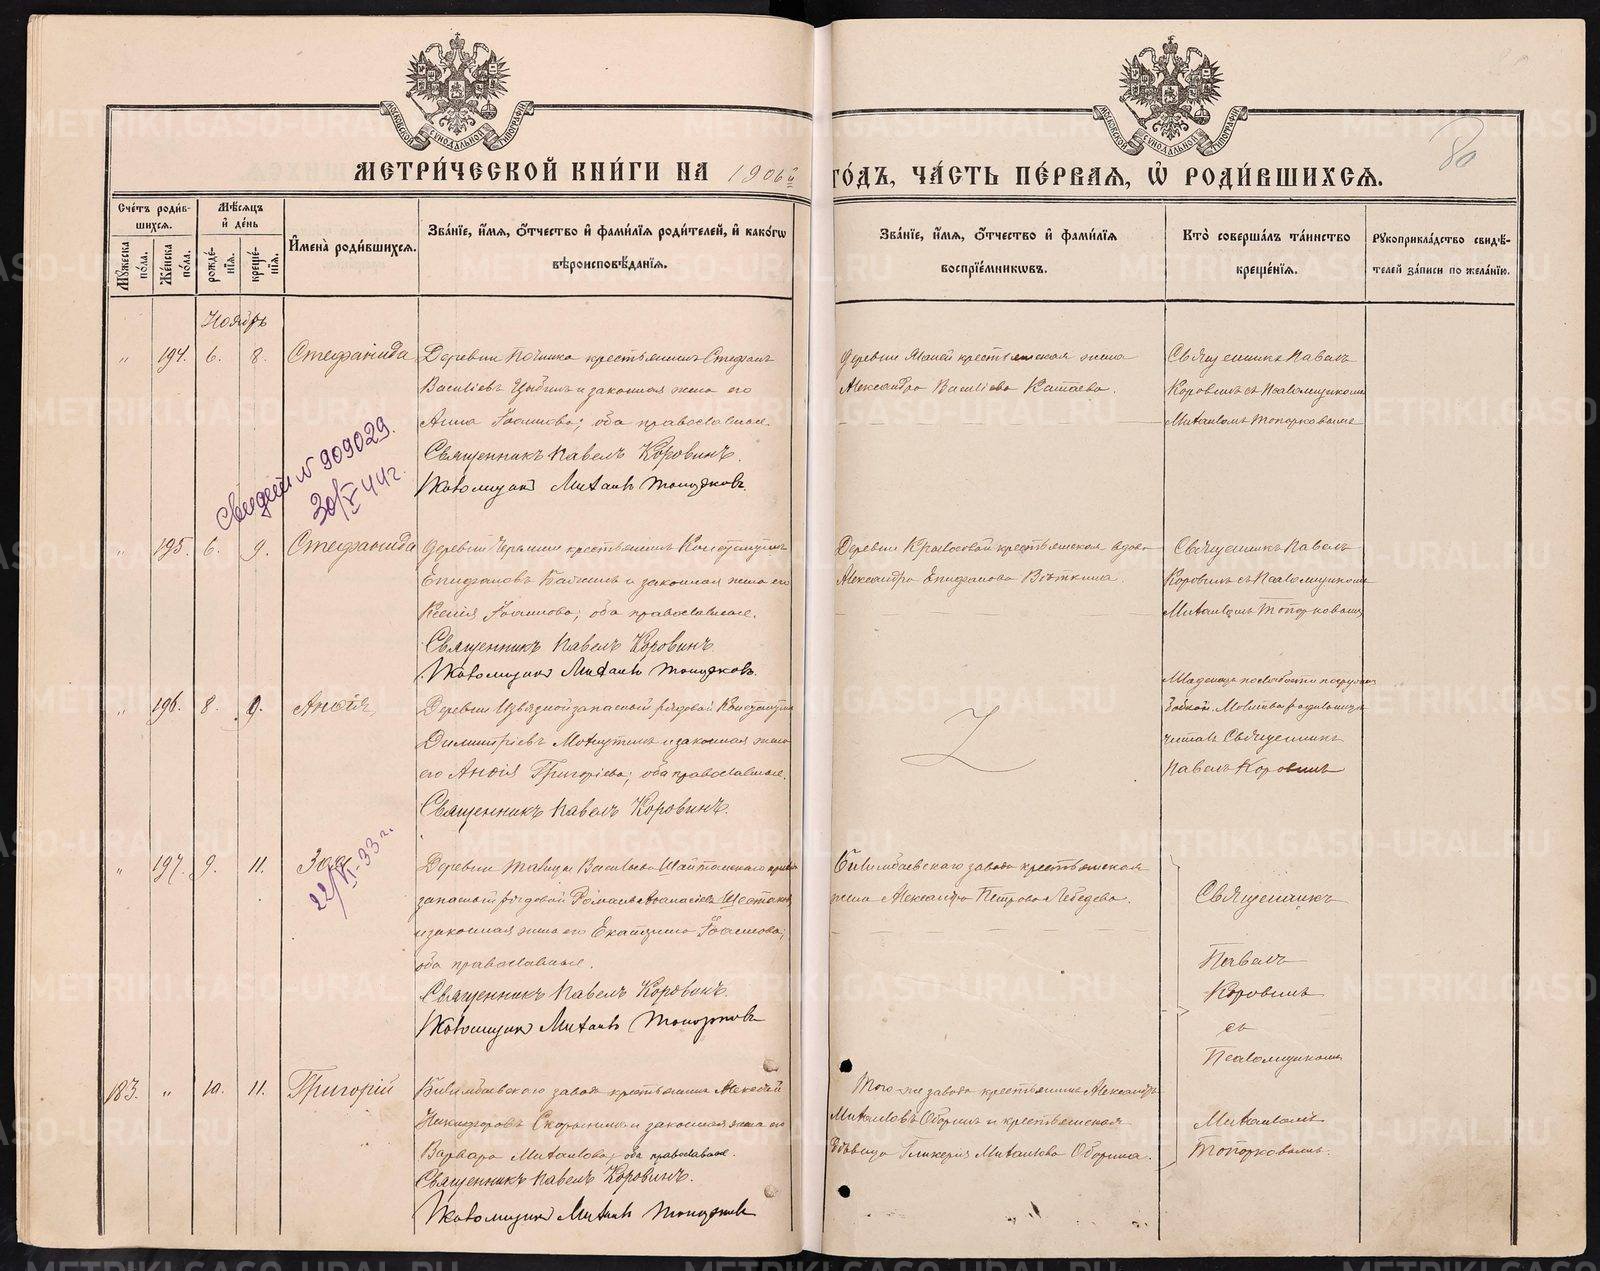 МЕТРИ́ЧЕСКОЙ КНИ́ГИ НА 1906й
ГО́ДЪ, ЧА́СТЬ ПЕ́РВАЯ, Ѡ҆ РОДИ́ВШИХСЯ.
80
Сче́тъ роди́в-
шихся.
Мꙋ́жеска по́ла.
Же́нска по́ла.
Мѣ́сяцъ и҆ де́нь
рожде́-
нїя.
креще́-
нїя.
И҆мена̀ роди́вшихся.
Зва́нїе, и҆́мя, ѻ҆́тчество и҆ фами́лїя роди́телей, и҆ како́гѡ
вѣроисповѣ́данїя.
Зва́нїе, и҆́мя, ѻ҆́тчество и҆ фами́лїя
воспрїе́мникѡвъ.
Кто̀ соверша́лъ та́инство
креще́нїя.
Рꙋкоприкла́дство свидѣ́-
телей за́писи по жела́нїю.
Ноябрь
" 194. 6. 8. Стефанида
Деревни Починка крестьянинъ Стефанъ
Васильевъ Цыбинъ и законная жена его
Анна Іоаннова; оба православные.
Священникъ Павелъ Коровинъ.
Псаломщикъ Михаилъ Топорковъ.
деревни крестьянская жена
Александра Васильева Катаева.
Священникъ Павелъ
Коровинъ съ Псаломщикомъ
Михаиломъ Топорковымъ
Свидет N 909029.
30/V 44 г.
" 195. 6. 9. Стефанида
деревни крестьянинъ Константинъ
Епифановъ и законная жена его
Ксенія Іоаннова; оба православные.
Священникъ Павелъ Коровинъ.
Псаломщикъ Михаилъ Топорковъ.
Деревни Крыласовой крестьянская вдова
Александра Епифанова Вяткина.
Священникъ Павелъ
Коровинъ съ Псаломщикомъ
Михаиломъ Топорковымъ
" 196. 8. 9. Анѳія
Деревни Извѣздной запасный рядовой Константинъ
Димитріевъ и законная жена
его Анѳія Григорьева; оба православные.
Священникъ Павелъ Коровинъ.
Младенецъ по слабости погруженъ
бабкой. Молитвы родильницѣ
читалъ Священникъ
Павелъ Коровинъ
" 197. 9. 11. Зоя
22/VI-33 г.
Деревни Васильево Шайтанского
запасный рядовой Романъ Аѳанасіевъ
и законная жена его Екатерина Іоаннова;
оба православные.
Священникъ Павелъ Коровинъ.
Псаломщикъ Михаилъ Топорковъ
Билимбаевскаго завода крестьянская
жена Александра Петрова Лебедева.
Священникъ
Павелъ
Коровинъ
съ
Псаломщикомъ
Михаиломъ
Топорковымъ.
183. " 10. 11. Григорій
Билимбаевскаго завода крестьянинъ Алексѣй
Никифоровъ Скорынинъ и законная жена его
Варвара Михаилова; оба православные.
Священникъ Павелъ Коровинъ.
Псаломщикъ Михаилъ Топорковъ
Того-же завода крестьянинъ Александръ
Михаиловъ Оборинъ и крестьянская
дѣвица Гликерія Михаилова Оборина.